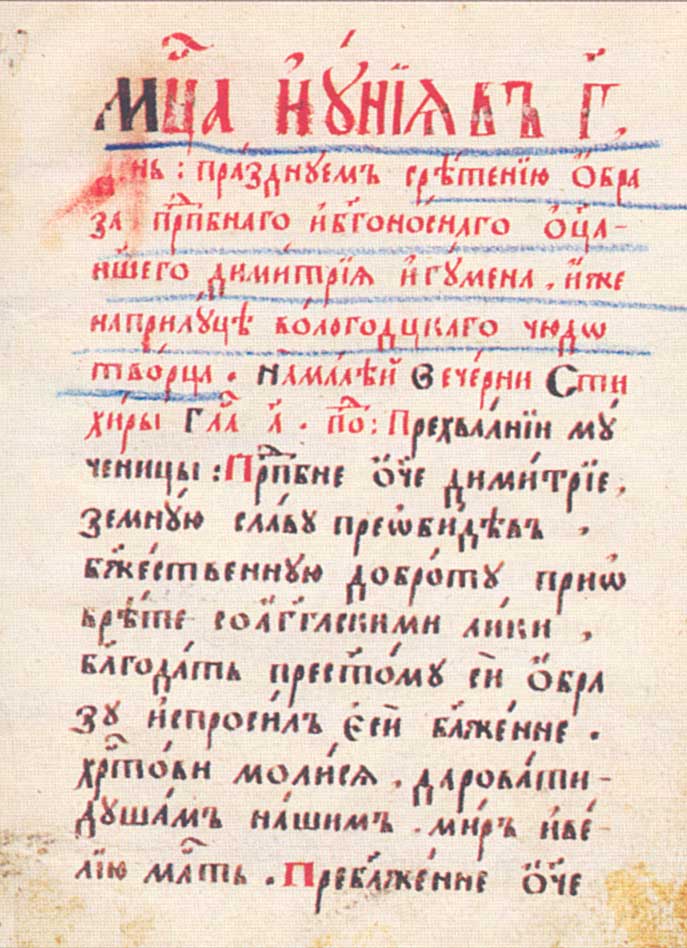 мц҃а і҆ꙋ́нїѧ въ г҃,
днь : празднꙋемъ срѣ́тенїю ѻ҆бра
за прпⷣбнаго и҆бг҃оно́снаго ѻ҆ц҃а-
на́шего дими́трїѧ и҆гꙋ́мена , и҆́же
наприлꙋ́цѣ во́логодцкаго чюдѡ
тво́рца . Нама́лѣй Вече́рни Сти
хи́ры гла́ а҃ . по́ : Прехва́лнїи мꙋ́
ченицы : Прпⷣбне ѻ҆́ч҃е дими́трїе ,
земнꙋ́ю сла́вꙋ преѡби́дѣвъ ,
бж҃е́ственнꙋю добро́тꙋ приѡ
брѣ́те соа҆́гг҃лскими ли́ки ,
бл҃года́ть прест҃о́мꙋ сй ѻ҆́бра
зꙋ и҆спроси́лъ є҆сѝ бл҃же́нне .
хрⷭто́ви моли́сѧ , дарова́ти-
дꙋша́мъ на́шимъ . ми́ръ и҆ве́-
лїю млⷭть . Пребл҃же́нне ѻ҆́ч҃е